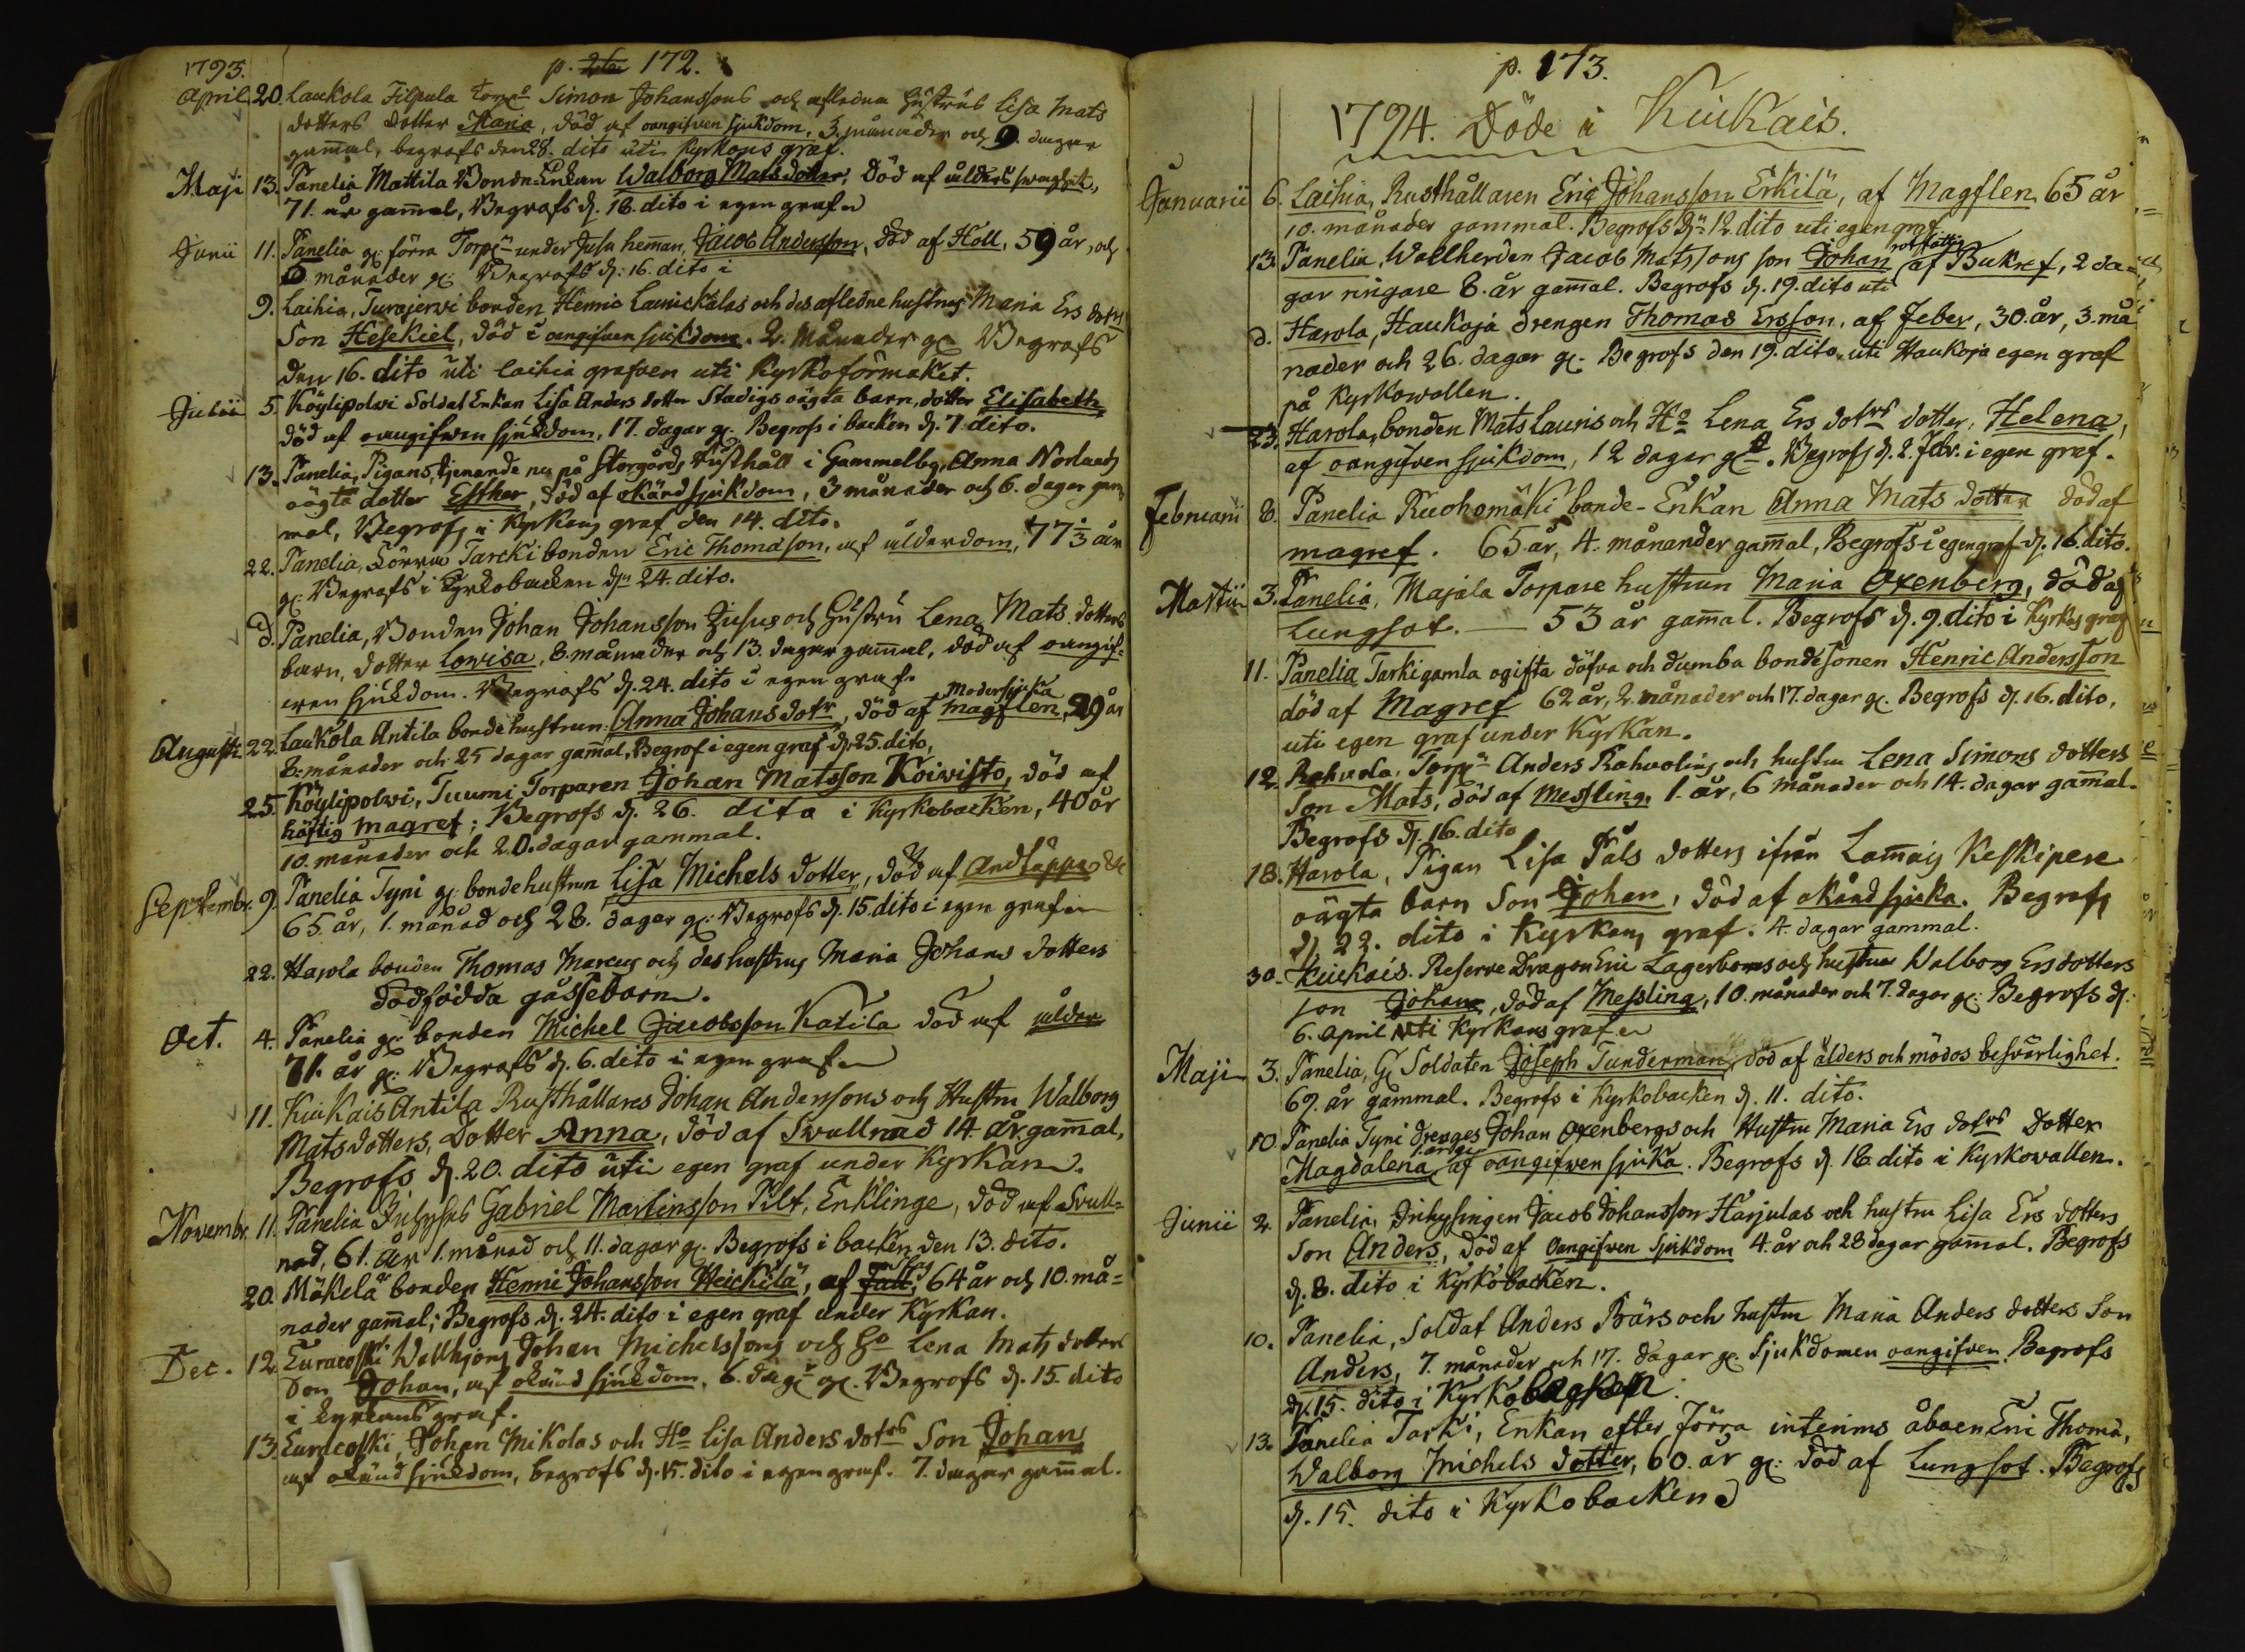 1793.
p. 172.
April 20. Laukola Filpula Torp. Simon Johanssons och afledna Hustrus Lisa Mats
dotters dotter Maria, död af oangifven sjukdom, 3. månader och 9. dagar
gam̄al, begrofs den 28. dito uti Kyrkans graf.
Maji 13. Panelia Mattila Bonde-Enkan Walborg Matsdotter, Död af ålders swaghet,
71. år gam̄al, Begrofs d. 18. dito i egen graf
Junii 11. Panelia g: förra Torp: under Jusu hem̄an, Jacob Andersson, död af Håll, 59 år, och
månader g: Begrofs d: 16. dito i
9. Laihia, Turajerwi bonden Henric Launickalas och des afledne hustrus Maria Ers dotrs
Son Hesekiel, död i oangifven sjukdom. 2. Månader g: Begrofs
den 16. dito uti laihia grafven uti Kyrkoförmaket.
Julii 5. Köylipolwi Soldat Enkan Lisa Anders dotter Stadigs oägta barn, dotter Elisabeth,
död af oangifven sjukdom, 17. dagar g: Begrofs i backen d. 7. dito.
13. Panelia, Pigans, tjenande nu på Storgårds Rusthåll i Gammelby, Anna
oägta dotter Esther, död af okänd sjukdom, 3 månader och 6. dagar gam
mal, Begrofs i Kyrkans graf den 14. dito.
22. Panelia, Förra Tarcki bonden Eric Thomasson, af ålderdom, 77⅓ år
g: Begrofs i Kyrkobacken dn 24. dito.
d. Panelia, Bonden Johan Johansson Jusus och Hustru Lena Mats dotters
barn, dotter Lowisa, 8. månader och 13. dagar gam̄al, död af oangif-
wen sjukdom. Begrofs d. 24. dito i egen graf.
Modersjuka
Augusti. 22. Laukola Antila bonde hustrun Anna Johans dotr, död af Magflen, 29 år
8. månader och 25 dagar gam̄al, Begrof i egen graf d. 25. dito,
25. Köylipolwi, Tuumi Torparen Johan Matsson Koiwisto, död af
häftig magref; Begrofs d. 26. dito i Kyrkobacken, 40 år
10. månader och 20. dagar gammal.
Septembr. 9. Panelia Tyni g: bonde hustrun Lisa Michels dotter, död af Andtäppa
65. år, 1. månad och 28. dagar g: Begrofs d. 15. dito i egen graf
22. Harola bonden Thomas Marcus och des hustrus Maria Johans dotters
dödfödda gåssebarn.
Oct. 4. Panelia g: bonden Michel Jacobsson Katila död af ålder
71. år g: Begrofs d. 6. dito i egen graf
11. Kiukais Antila Rusthållares Johan Anderssons och Hustru Walborg
Matsdotters, Dotter Anna, död af Svullnad 14. år. gam̄al,
Begrofs d. 20. dito uti egen graf under Kyrkan.
Novembr. 11. Panelia Inhyses Gabriel Martinsson Pilt, Enklinge, död af Svull-
nad, 61. år 1. månad och 11. dagar g: Begrofs i backen den 13. dito.
20. Mäkelä bonden Henric Johansson Heickilä, af 64 år och 10. må-
nader gam̄al; Begrofs d. 24. dito i egen graf under Kyrkan.
Dec. 12. Euracoski Wallhjons Johan Michelssons och Ho Lena Mats dotters
Son Johan, af okänd sjukdom, 6. dagr g: Begrofs d. 15. dito
i kyrkans graf.
13. Euracoski, Johan Mikolas och Ho Lisa Anders dotrs Son Johan
af okänd sjukdom, begrofs d. 15. dito i egen graf. 7. dagar gam̄al.
p. 173.
1794. Döde i Kiukais.
Januarii 6. Laihia, Rusthållaren Eric Johansson Erkilä, af Magflen 65 år
10. månader gammal. Begrofs dn 12 dito uti egen graf.
13. Panelia, Wallherden Jacob Matssons son Johan af Bukref, 2 da-
gar ringare 8. år gam̄al. Begrofs d. 19. dito uti
d. Harola, Haukoja drengen Thomas Ersson, af Feber, 30. år, 3. må
nader och 26. dagar g: Begrofs den 19. dito, uti Haukoja egen graf
på Kyrkowallen.
23. Harola, bonden Mats Lauris och Ho Lena Ers dotrs dotter, Helena,
af oangifven sjukdom, 12 dagar g: Begrofs d. 2. Febr. i egen graf.
Februarii 8. Panelia Ruohomäki bonde-Enkan Anna Mats dotter död af
magref. 65 år, 4. månander gam̄al, Begrofs i egen graf d. 16. dito.
Martii 3. Panelia, Majala Torpare hustrun Maria Oxenberg, död af
Lungsot. — 53 år gam̄al. Begrofs d. 9. dito i Kyrkos graf
11. Panelia Tarki gamla ogifta döfva och dumba bondesonen Henric Andersson
död af Magref 62 år, 2. månader och 17. dagar g: Begrofs d. 16. dito,
uti egen graf under Kyrkan.
12. Rahvola, Torp: Anders Rahvolins och hustru Lena Simons dotters
Son Mats, död af Messling, 1. år, 6 månader och 14. dagar gam̄al.
Begrofs d. 16. dito
18. Harola, Pigan Lisa Påls dotters ifrån Lam̄ais Keskipere
oägta barn Son Johan, död af okänd sjuka. Begrofs
d. 22. dito i Kyrkans graf. 4. dagar gammal.
30. Kiukais. Reserve Dragon Eric Lagerboms och hustrus Walborg Ersdotters
son Johan, död af Messling, 10. månader och 7. dagar g: Begrofs d:
6. April uti Kyrkans graf
Maji 3. Panelia, G: Soldaten Joseph Tunderman, död af ålders och mödos besvärlighet.
69. år gammal. Begrofs i Kyrkobacken d. 11. dito.
10. Panelia Tyni drenges Johan Oxenbergs och Hustru Maria Ers dotrs Dotter
Magdalena, af oangifven sjuka. Begrofs d. 18. dito i Kyrkowallen.
Junii 2. Panelia, Inhysingen Jacob Johansson Harjulas och hustru Lisa Ers dotters
Son Anders, död af Oangifven sjukdom 4. år och 28 dagar gam̄al. Begrofs
d. 8. dito i Kyrkobacken.
10. Panelia, Soldat Anders Bärs och hustru Maria Anders dotters Son
Anders, 7. månader och 17. dagar g: Sjukdomen oangifven. Begrofs
d. 15. dito i Kyrkobacken.
13. Panelia Tarki, Enkan efter Förra interims åboen Eric Thoma,
Walborg Michels dotter, 60. år g: död af Lungsot. Begrofs
d. 15. dito i Kyrkobacken